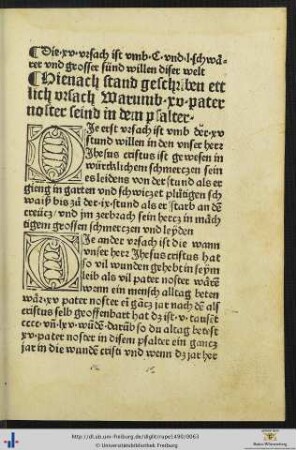 Die·xv·vrsach ist vmb·C·vnd·l·schwä-
rer vnd grosser sünd willen diser welt
Hienach stand geschriben ett
lich vrsach Warumb·xv·pater
noster seind in dem psalter·
DJe erst vrsach ist vmb der·xv
stund willen in den vnser herr
Jhesus cristus ist gewesen in
würcklichem schmerczen sein
es leidens von der stund als er
gieng in garten vnd schwiczet plůtigen sch
waiß bis zů der·ix·stund als er starb an dē
creücz/ vnd jm zerbrach sein hercz in mäch
tigem grossen schmerczen vnd leyden
DJe ander vrsach ist die wann
vnser herr Jhesus cristus hat
so vil wunden gehebt in seym
leib als vil pater noster wärē
wenn ein mensch alltag beten
wär·xv pater noster eī gācz jar nach dē als
cristus selb geoffenbart hat dz ist·v·tausēt
cccc·vn̄·lxv·wūdē·darūb so du altag betest
xv·pater noster in disem psalter ein gancz
jar in die wundē cristi vnd wenn dz jar her
http://dl.ub.uni-freiburg.de/diglit/rupe1490/0063
© Universitätsbibliothek Freiburg
Baden-Württemberg